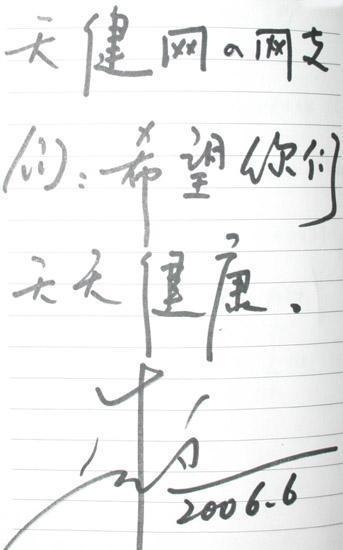 天健网の网友
们：希望你们
天天健康、
2006.6